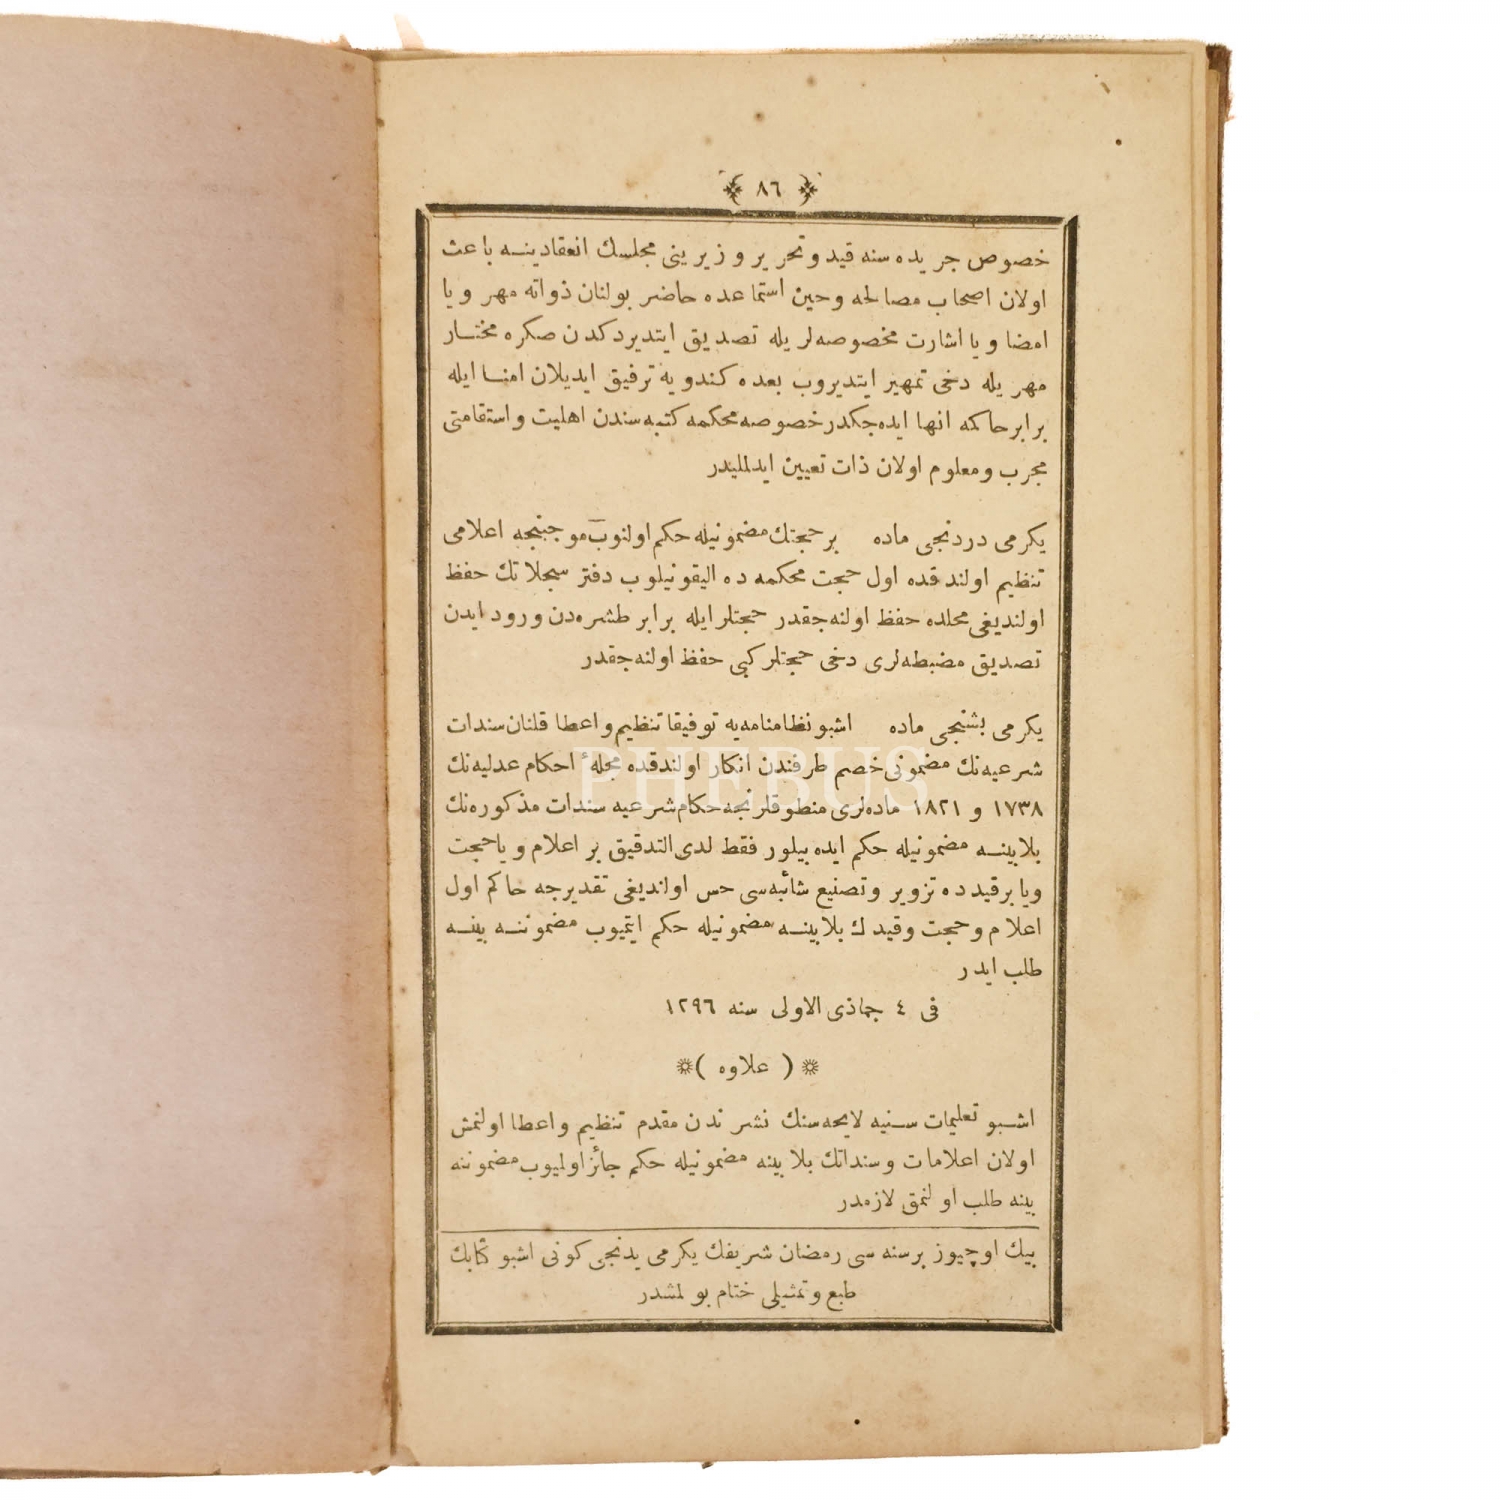 ٨٦
خصوص جريده سنه قيد وتحرير و زيريني مجلسك انعقادينه باعث
اولان اصحاب مصالحه وحين استماعده حاضر بولنان ذواته مهر ويا
امضا ويا اشارت مخصوصه‌لريله تصديق ايتديردكدن صكره مختار
مهريله دخى تمهير ايتديروب بعده كندويه ترفيق ايديلان امنا ايله
برابر حاكمه انها ايده‌جكدر خصوصه محكمه كتبه‌سندن اهليت واستقامتى
مجرب ومعلوم اولان ذات تعيين ايدلمليدر
يكرمى دردنجى ماده بر حجتك مضمونيله حكم اولنوب موجبنجه اعلامى
تنظيم اولندقده اول حجت محكمه ده اليقونيلوب دفتر سجلاتك حفظ
اولنديغى محلده حفظ اولنه‌جقدر حجتلر ايله برابر طشره‌دن ورود ايدن
تصديق مضبطه‌لرى دخى حجتلر كبى حفظ اولنه‌جقدر
يكرمى بشنجى ماده اشبو نظامنامه‌يه توفيقا تنظيم واعطا قلنان سندات
شرعيه‌نك مضمونى خصم طرفندن انكار اولندقده مجلهٔ احكام عدليه‌نك
١٧٣٨ و ١٨٢١ ماده‌لرى منطوقلرنجه حكام شرعيه سندات مذكوره‌نك
بلابينه مضمونيله حكم ايده بيلور فقط لدى التدقيق بر اعلام ويا حجت
ويا برقيد ده تزوير وتصنيع شائبه‌سى حس اولنديغى تقديرجه حاكم اول
اعلام وحجت وقيدك بلابينه مضمونيله حكم ايتميوب مضموننه بينه
طلب ايدر
فى ٤ جماذى الاولى سنه ١٢٩٦
( علاوه )
اشبو تعليمات سنيه لايحه‌سنك نشرندن مقدم تنظيم واعطا اولنمش
اولان اعلامات وسنداتك بلا بينه مضمونيله حكم جائز اولميوب مضموننه
بينه طلب اولنمق لازمدر
بيك اوچيوز برسنه سى رمضان شريفك يكرمى يدنجى كونى اشبو كتابك
طبع وتمثيلى ختام بولمشدر
PHEBUS